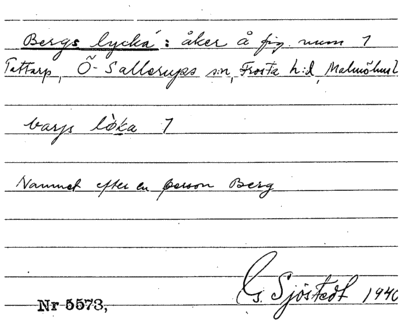 Bergs lycka: åker å fig. num 1
Tattarp, Ö-Sallerups sn, Frosta h:d, Malmöhus l
barjs lòka 1
Namnet efter en person Berg
G. Sjöstedt 1940
Nr 5573,